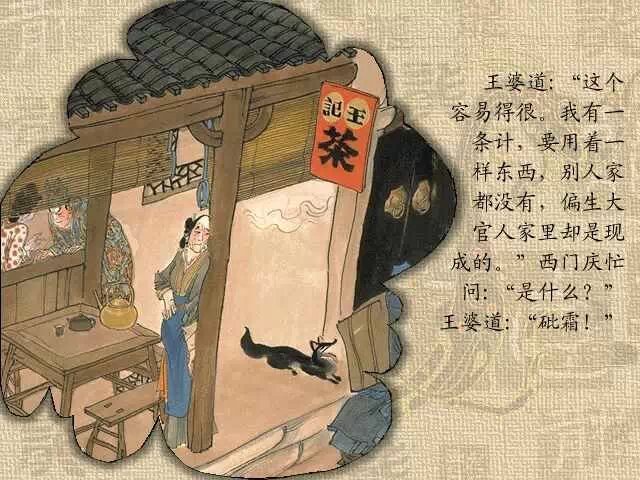 王记
茶
王婆道：“这个
容易得很。我有一
条计，要用着一
样东西，别人家
都没有，偏生大
官人家里却是现
成的。”西门庆忙
问：“是什么？”
王婆道：“砒霜！”